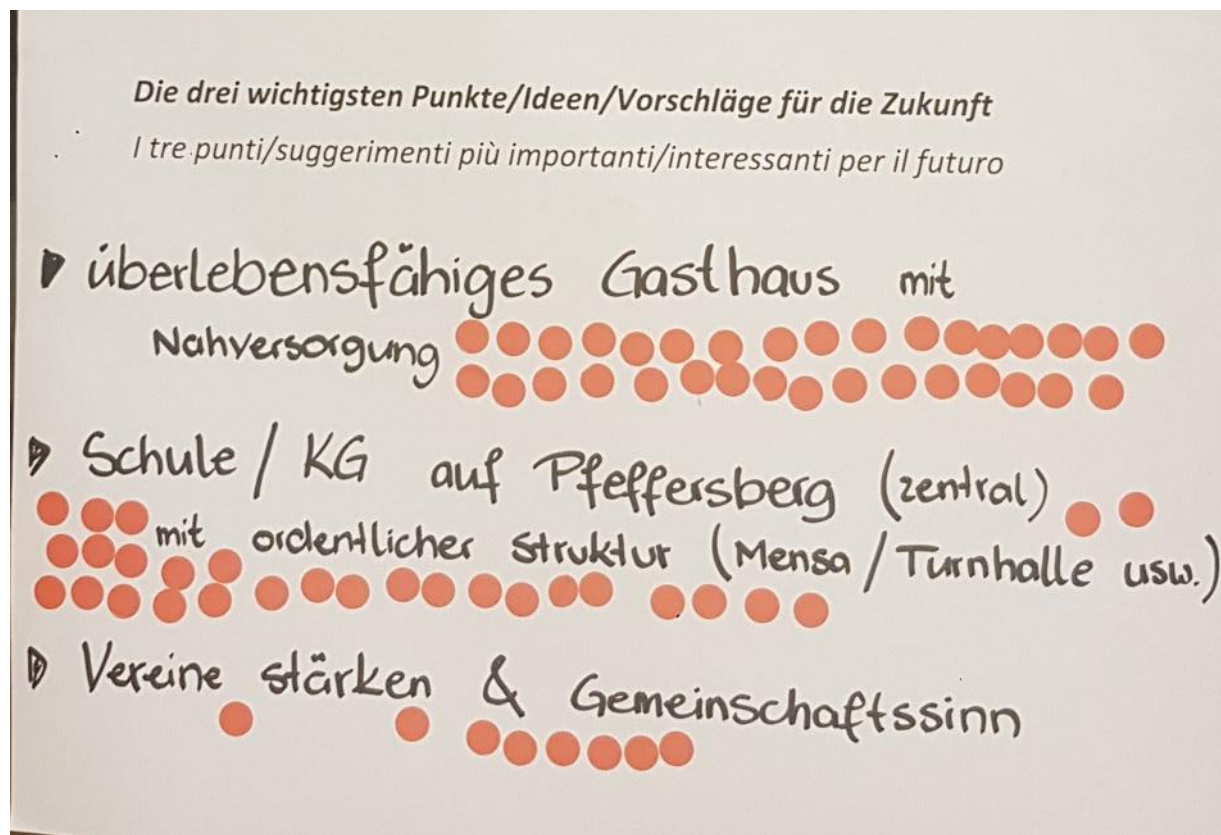 Die drei wichtigsten Punkte/Ideen/Vorschläge für die Zukunft
I tre punti/suggerimenti più importanti/interessanti per il futuro
überlebensfähiges Gasthaus mit
Nahversorgung
Schule / KG auf Pfeffersberg (zentral)
mit ordentlicher Struktur (Mensa / Turnhalle usw.)
Vereine stärken & Gemeinschaftssinn